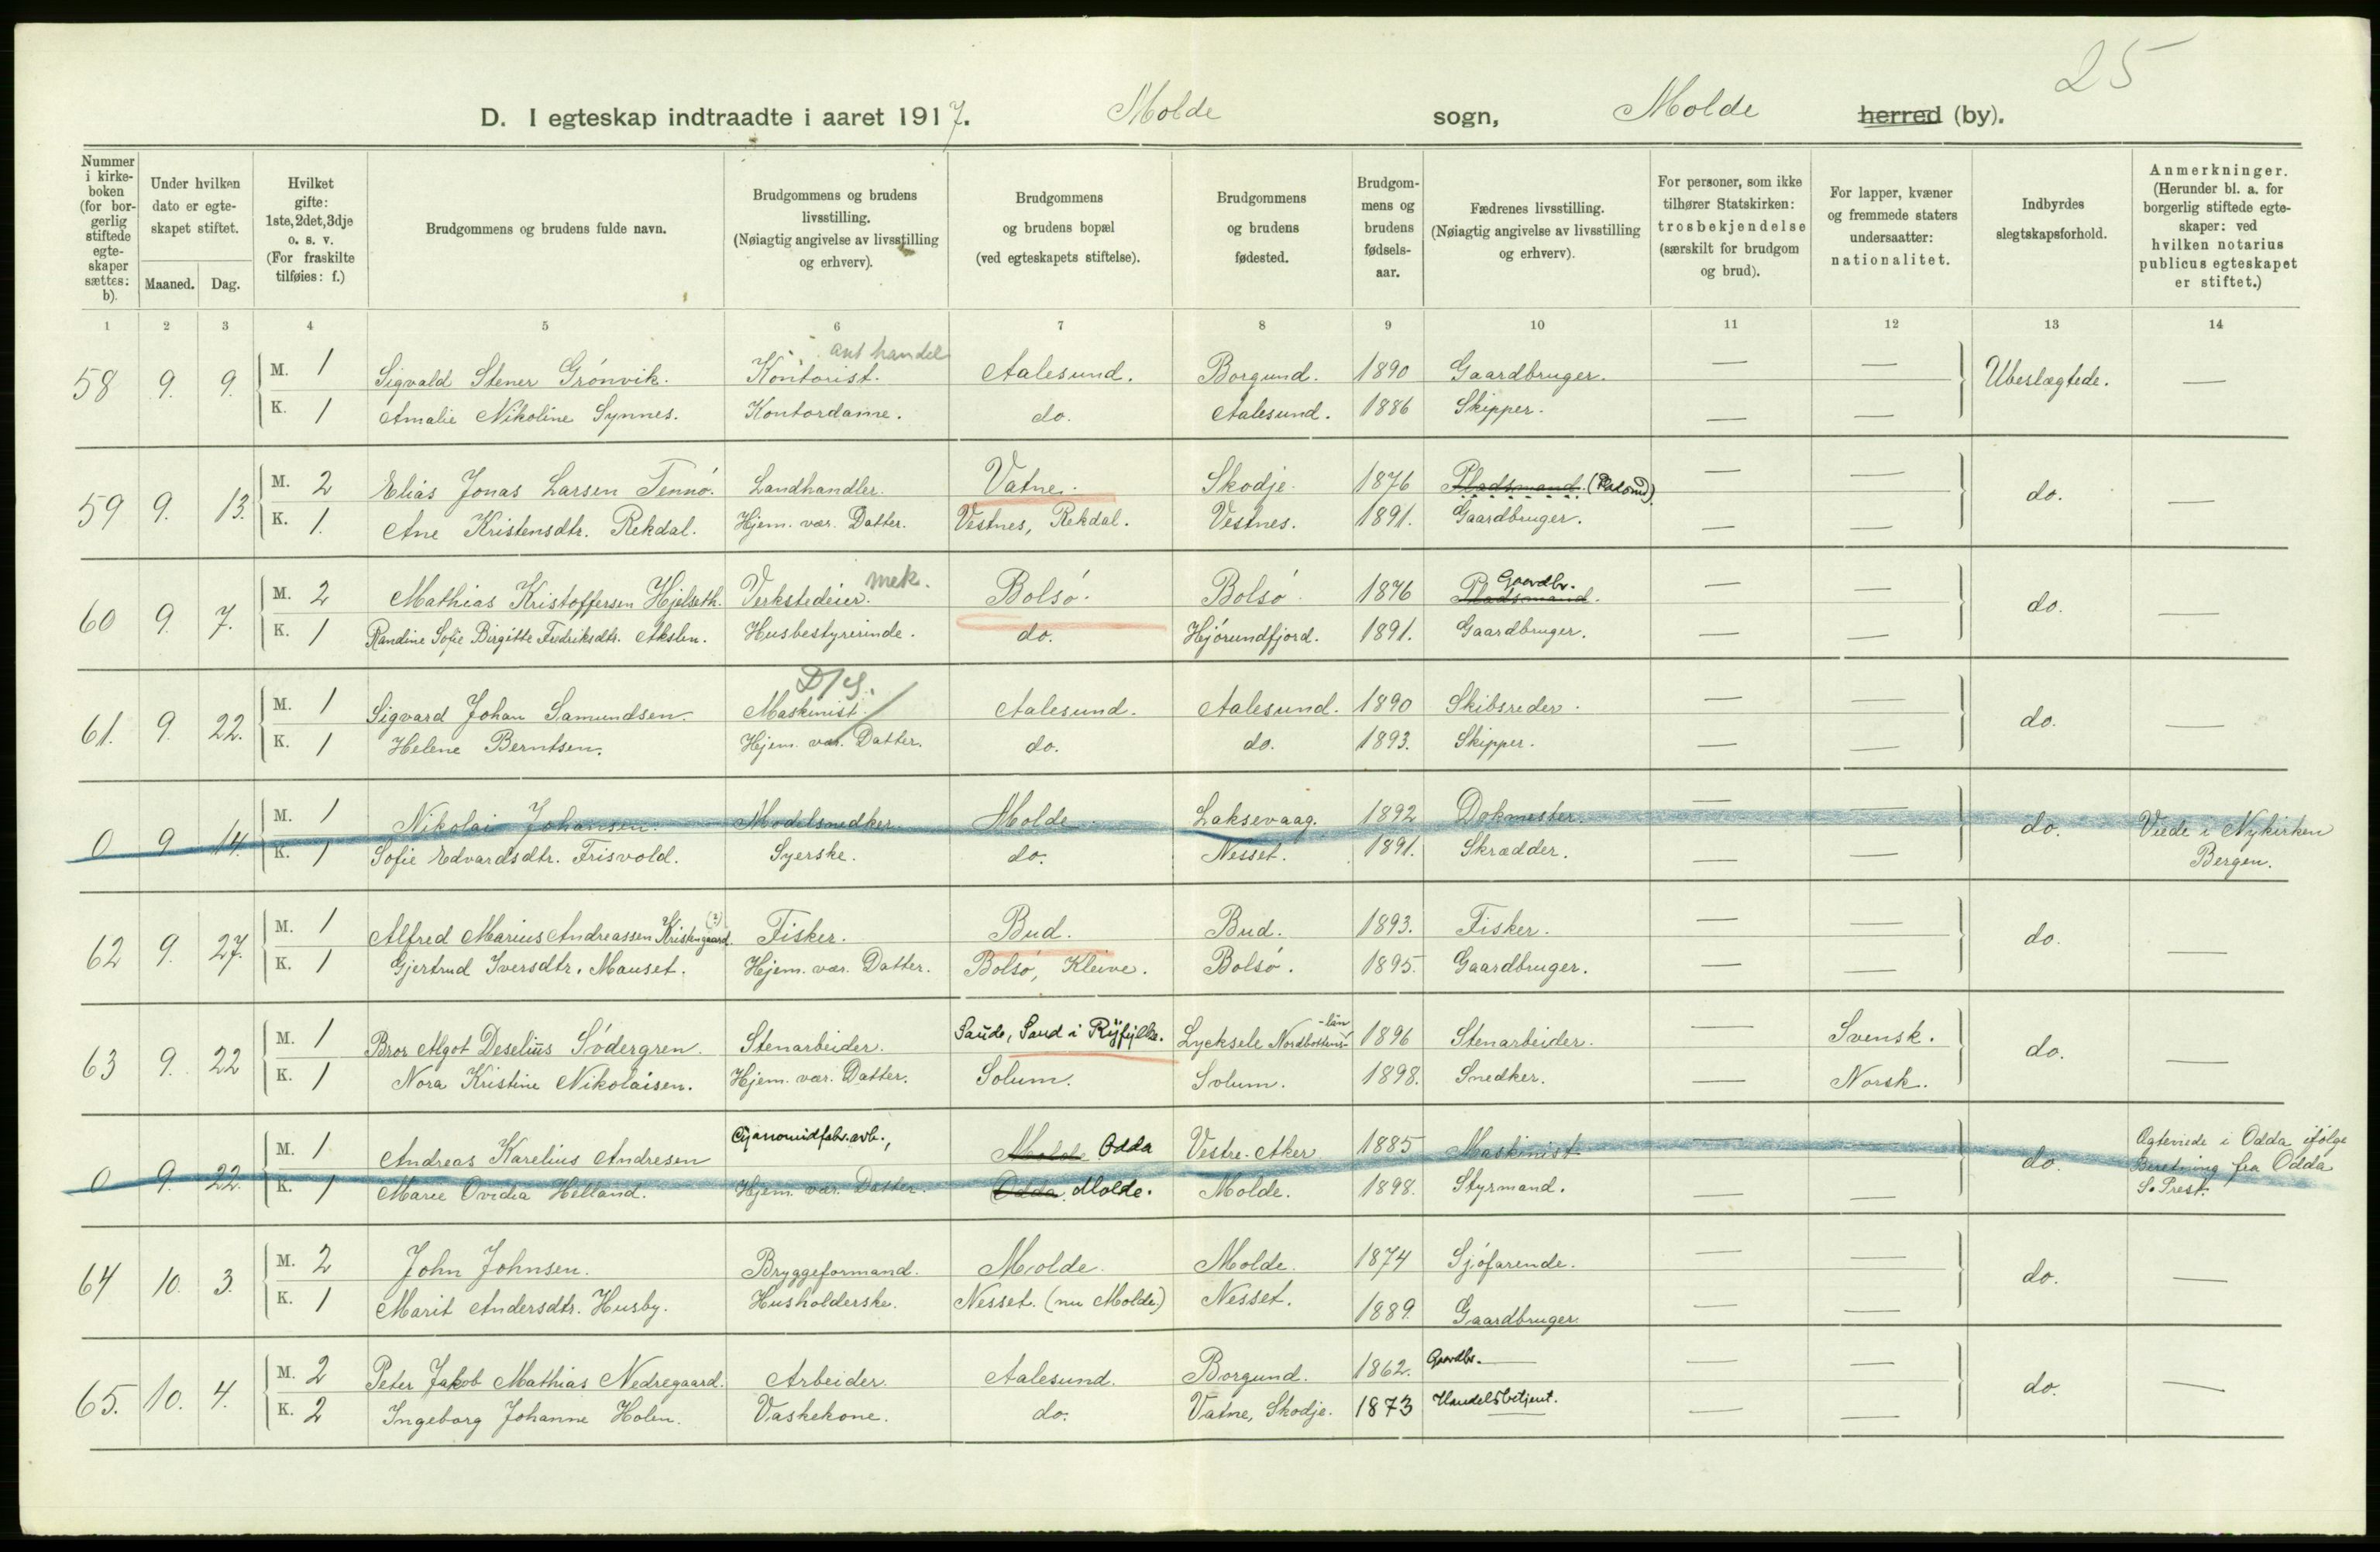 25
D. I egteskap indtraadte i aaret 1917. Molde sogn, Molde herred (by).
Nummer i kirke-boken (for bor-gerlig stiftede egte-skaper sættes: b).
Under hvilken dato er egte-skapet stiftet.
Maaned. Dag.
Hvilket gifte: 1ste, 2det, 3dje o. s. v. (For fraskilte tilføies: f.)
Brudgommens og brudens fulde navn.
Brudgommens og brudens livsstilling. (Nøiagtig angivelse av livsstilling og erhverv).
Brudgommens og brudens bopæl (ved egteskapets stiftelse).
Brudgommens og brudens fødested.
Brudgom-mens og brudens fødsels-aar.
Fædrenes livsstilling. (Nøiagtig angivelse av livsstilling og erhverv).
For personer, som ikke tilhører Statskirken: trosbekjendelse (særskilt for brudgom og brud).
For lapper, kvæner og fremmede staters undersaatter: nationalitet.
Indbyrdes slegtskapsforhold.
Anmerkninger. (Herunder bl. a. for borgerlig stiftede egte-skaper: ved hvilken notarius publicus egteskapet er stiftet.)
1 2 3 4 5 6 7 8 9 10 11 12 13 14
58 9. 9. M. 1 Sigvald Stener Grönvik. Kontorist. ant handel Aalesund. Borgund. 1890 Gaardbruger. — — Ubeslægtede. —
K. 1 Amalie Nikoline Synnes. Kontordame. do. Aalesund. 1886 Skipper. — —
59 9. 13. M. 2 Elias Jonas Larsen Tennö. Landhandler. Vatne. Skodje. 1876 Pladsmand. — — do. —
K. 1. Ane Kristensdtr. Rekdal. Hjem. vær. Datter. Vestnes, Rekdal. Vestnes. 1891. Gaardbruger. — —
60 9. 7. M. 2 Mathias Kristoffersen Hjelseth. Verkstedeier. mek. Bolsö. Bolsö. 1876 Pladsmand. Gaardbr. — — do. —
K. 1 Randine Sofie Birgitte Fredriksdtr. Akslen. Husbestyrerinde. do. Hjörundfjord. 1891. Gaardbruger. — —
61. 9. 22. M. 1 Sigvard Johan Samundsen. Maskinist. D/S. Aalesund. Aalesund. 1890 Skibsreder. — — do. —
K. 1 Helene Berntsen. Hjem. vær. Datter. do. do. 1893. Skipper. — —
0 9 14. M. 1 Nikolai Johansen. Modelsnedker. Molde. Laksevaag. 1892 Dokmester. — — do. Viede i Nykirken
K. 1 Sofie Edvardsdtr. Frisvold. Syerske. do. Nesset. 1891. Skrædder. — — Bergen.
62 9. 27. M. 1 Alfred Marius Andreassen Kristengaard. (?) Fisker. Bud. Bud. 1893. Fisker. — — do. —
K. 1 Gjertrud Iversdtr. Mauset. Hjem. vær. Datter. Bolsö, Kleive. Bolsö. 1895. Gaardbruger. — —
63 9. 22 M. 1 Bror Algot Deselius Södergren. Stenarbeider. Saude, Sand i Ryfylke. Lycksele Nordbottens-län 1896 Stenarbeider. — Svensk. do. —
K. 1 Nora Kristine Nikolaisen. Hjem. vær. Datter. Solum. Solum. 1898. Snedker. — Norsk.
0 9. 22. M. 1 Andreas Karelius Andresen Cyanomidfabr.arb., Molde Odda Vestre Aker 1885 Maskinist. — — do. Egteviede i Odda ifölge
K. 1 Marie Ovidia Helland. Hjem. vær. Datter. Odda. Molde. Molde. 1898. Styrmand. — — Beretning fra Odda S. Prest.
64 10. 3. M. 2 John Johnsen. Bryggeformand. Molde. Molde. 1874 Sjöfarende. — — do. —
K. 1 Marit Andersdtr. Husby. Husholderske. Nesset. (nu Molde.) Nesset. 1889. Gaardbruger. — —
65. 10. 4. M. 2 Peter Jakob Mathias Nedregaard. Arbeider. Aalesund. Borgund. 1862. Gaardbr. — — do. —
K. 2 Ingeborg Johanne Holen. Vaskekone. do. Vatne, Skodje. 1873 Handelsbetjent. — —